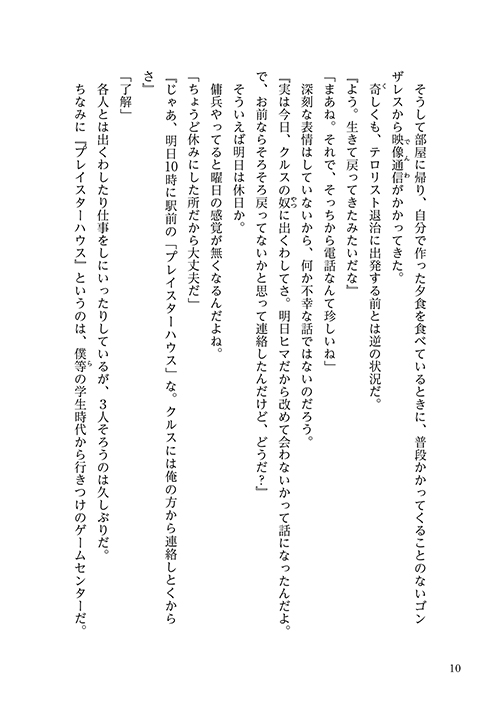 そうして部屋に帰り、自分で作った夕食を食べているときに、普段かかってくることのないゴン
ザレスから映像通信がかかってきた。
奇しくも、テロリスト退治に出発する前とは逆の状況だ。
『よう。生きて戻ってきたみたいだな』
「まあね。それで、そっちから電話なんて珍しいね」
深刻な表情はしていないから、何か不幸な話ではないのだろう。
『実は今日、クルスの奴に出くわしてさ。明日ヒマだから改めて会わないかって話になったんだよ。
で、お前ならそろそろ戻ってないかと思って連絡したんだけど、どうだ？』
そういえば明日は休日か。
傭兵やってると曜日の感覚が無くなるんだよね。
「ちょうど休みにした所だから大丈夫だ」
『じゃあ、明日10時に駅前の「プレイスターハウス」な。クルスには俺の方から連絡しとくから
さ』
「了解」
各人とは出くわしたり仕事をしにいったりしているが、３人そろうのは久しぶりだ。
ちなみに『プレイスターハウス』というのは、僕等の学生時代から行きつけのゲームセンターだ。
10